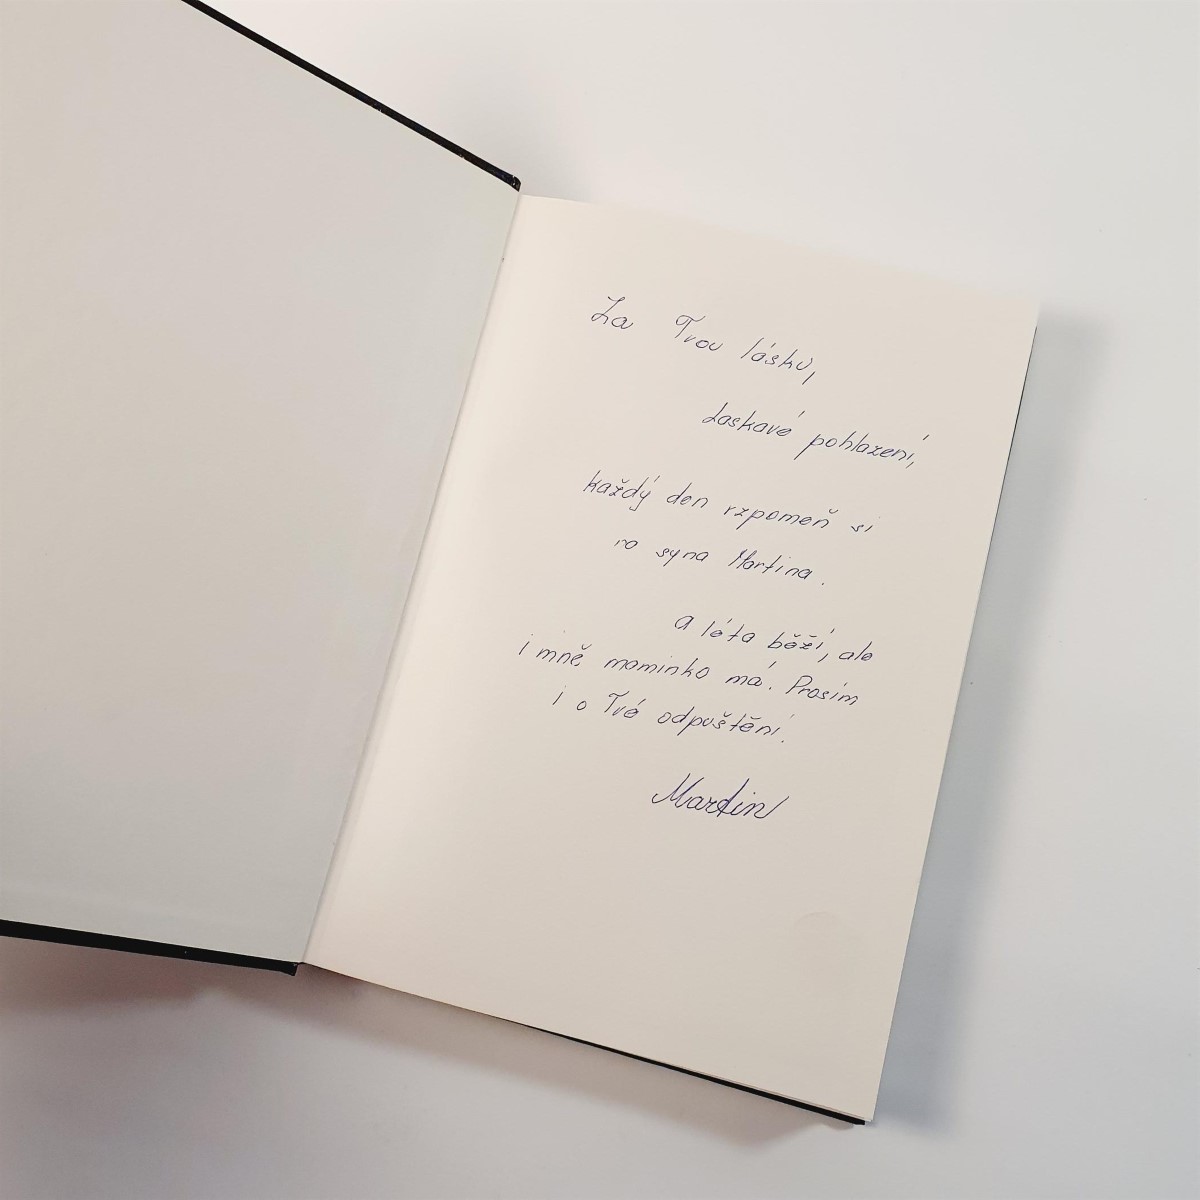 Za Tvou lásku,
Laskavé pohlazení,
každý den vzpomeň si
na syna Martina.
a léta běží, ale
i mně, maminko má. Prosím
i o Tvé odpuštění.
Martin